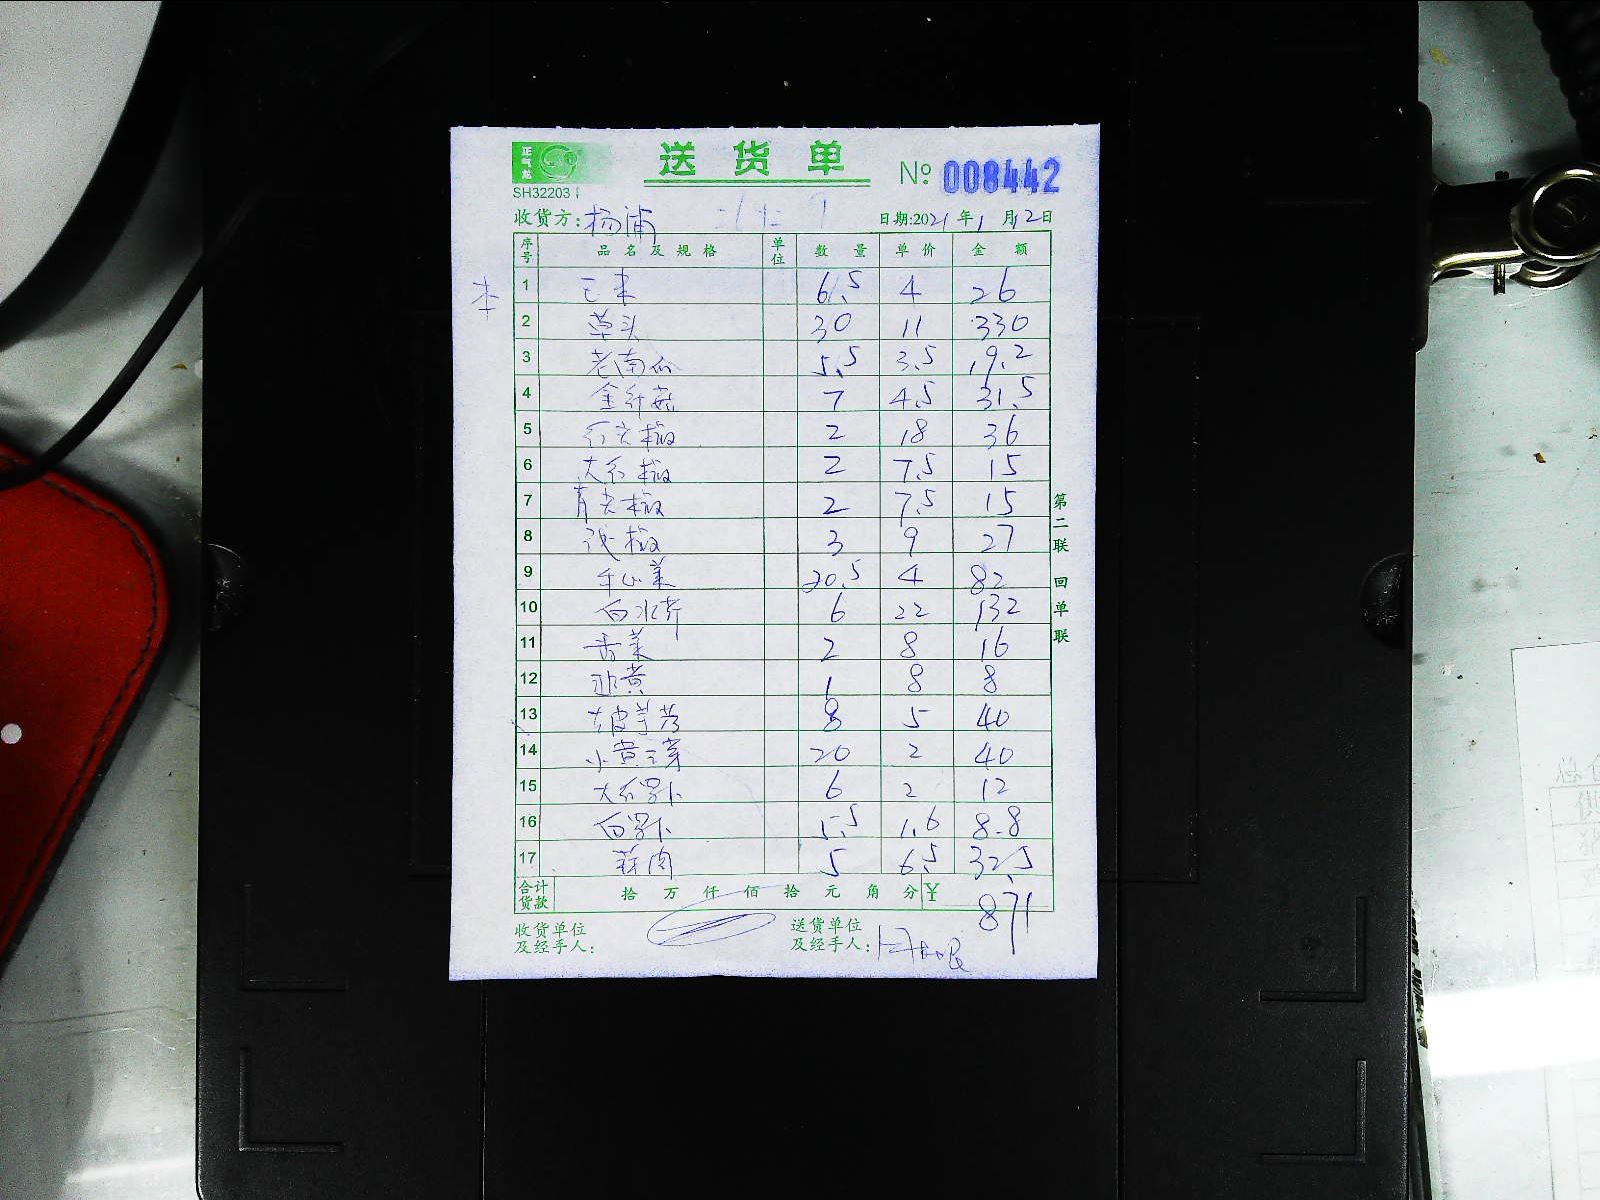 正气龙
送货单
№ 008442
SH32203
收货方: 杨浦
日期:2021年1月12日
序号 品名及规格 单位 数量 单价 金额
1 玉米 6.5 4 26
2 草头 30 11 330
3 老南瓜 5.5 3.5 19.2
4 金针菇 7 4.5 31.5
5 红尖椒 2 18 36
6 大红椒 2 7.5 15
7 青尖椒 2 7.5 15
8 线椒 3 9 27
9 20.5 4 82
10 白水芹 6 22 132
11 香菜 2 8 16
12 韭黄 1 8 8
13 8 5 40
14 小黄豆芽 20 2 40
15 大红罗卜 6 2 12
16 白罗卜 5.5 1.6 8.8
17 蒜肉 5 6.5 32.5
合计货款 拾 万 仟 佰 拾 元 角 分 ¥ 871
收货单位及经手人:
送货单位及经手人:
第二联 回单联